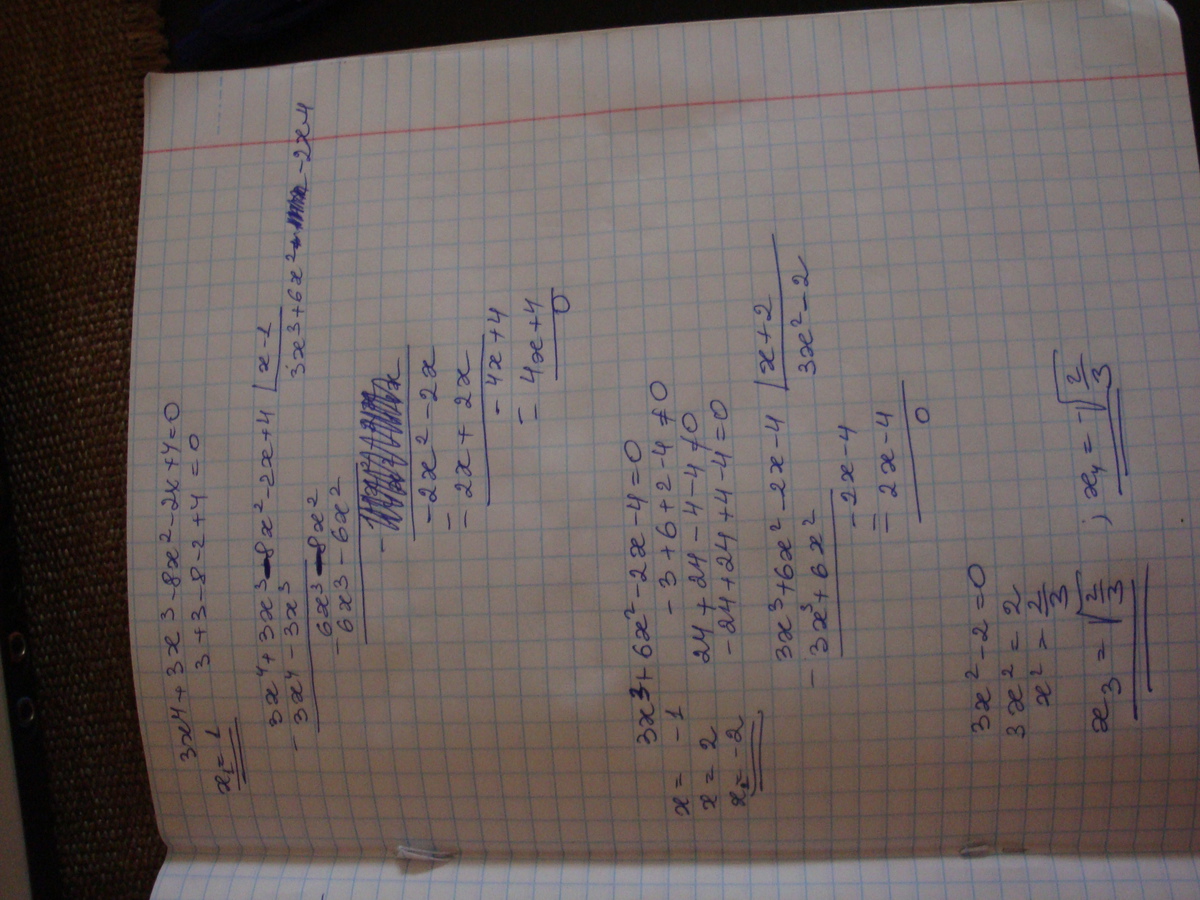 3x4+3x3-8x2-2x+4=0
3+3-8-2+4=0
x1=1
3x4+3x3-8x2-2x+4 | x-1
- 3x4-3x3
3x3+6x2 -2x-4
6x3-8x2
- 6x3-6x2
-2x2-2x
= 2x+2x
-4x+4
= 4x+4
0
3x3+6x2-2x-4=0
x= -1 -3+6+2-4≠0
x= 2 24+24-4-4≠0
x2=-2 -24+24+4-4=0
3x3+6x2-2x-4 | x+2
- 3x3+6x2 3x2-2
-2x-4
= 2x-4
0
3x2-2=0
3x2=2
x2>2/3
x3=√2/3 ; x4=-√2/3